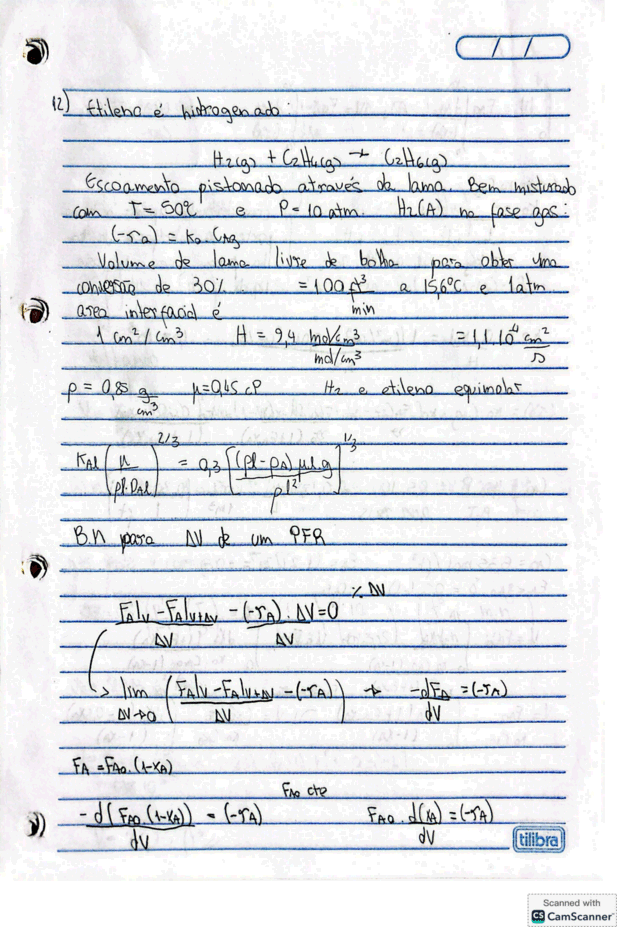 / /
12) Etileno é hidrogenado:
H2(g) + C2H4(g) → C2H6(g)
Escoamento pistonado através da lama. Bem misturado
com T = 50°C e P = 10 atm. H2(A) na fase gás:
(-ra) = Ko. CAg
Volume de lama livre de bolha para obter uma
conversão de 30% = 100 ft³/min a 15,6°C e 1atm
área interfacial é
1 cm²/cm³ H = 9,4 mol/cm³ / mol/cm³ = 1,1.10⁻⁴ cm²/s
ρ = 0,85 g/cm³ μ = 0,45 cP H2 e etileno equimolar
KAl (μ/ρl.DAl)^2/3 = 0,3 [(ρl - ρA) μl.g / ρl²]^1/3
B.N para ΔV de um PFR
÷ ΔV
FA|V - FA|V+ΔV / ΔV - (-rA). ΔV / ΔV = 0
lim ΔV→0 (FA|V - FA|V+ΔV / ΔV - (-rA)) → -dFA/dV = (-rA)
FA = FA0. (1-XA)
FA0 cte
-d(FA0.(1-XA))/dV = (-rA) FA0. d(XA)/dV = (-rA)
tilibra
Scanned with
CS CamScanner